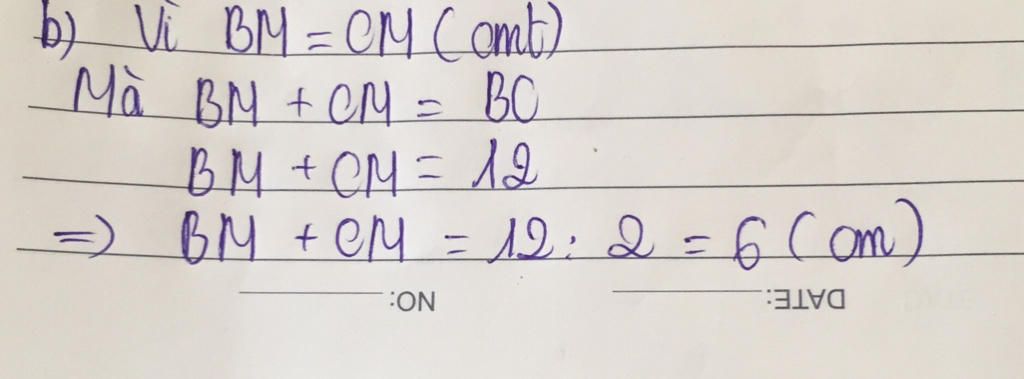 b) Vì BM = CM (cmt)
Mà BM + CM = BC
BM + CM = 12
=> BM + CM = 12 : 2 = 6 (cm)
NO: DATE: